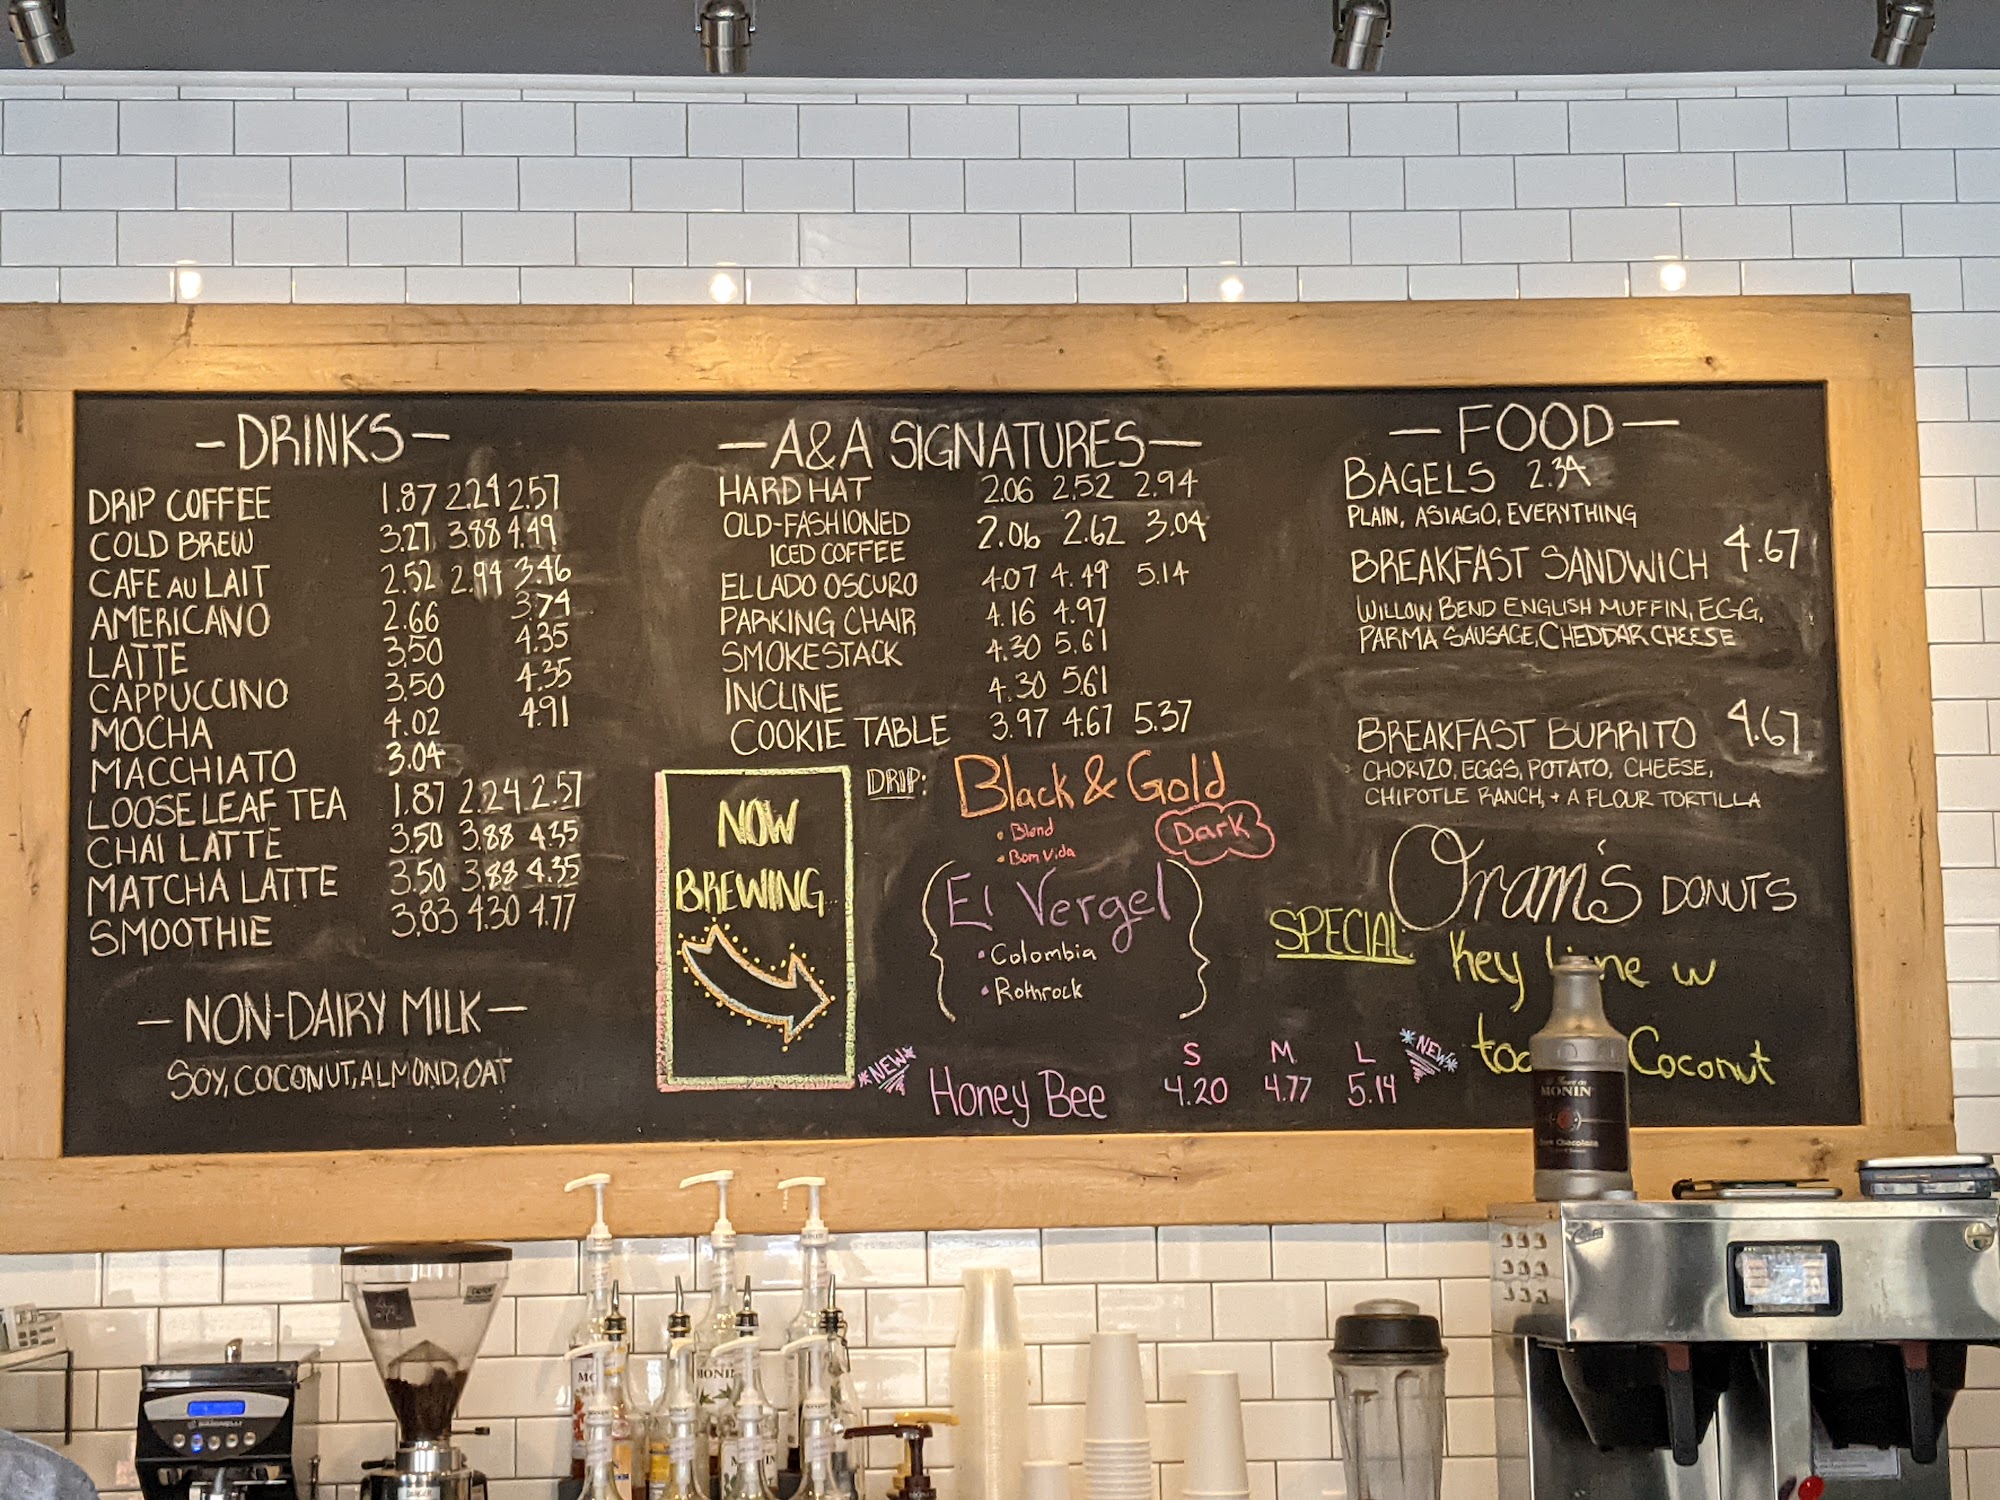 -DRINKS-
DRIP COFFEE 1.87 2.24 2.57
COLD BREW 3.27 3.88 4.49
CAFE AU LAIT 2.52 2.94 3.46
AMERICANO 2.66 3.74
LATTE 3.50 4.35
CAPPUCCINO 3.50 4.35
MOCHA 4.02 4.91
MACCHIATO 3.04
LOOSE LEAF TEA 1.87 2.24 2.57
CHAI LATTE 3.50 3.88 4.35
MATCHA LATTE 3.50 3.88 4.35
SMOOTHIE 3.83 4.30 4.77
-NON-DAIRY MILK-
SOY, COCONUT, ALMOND, OAT
-A&A SIGNATURES-
HARD HAT 2.06 2.52 2.94
OLD-FASHIONED
ICED COFFEE 2.06 2.62 3.04
EL LADO OSCURO 4.07 4.49 5.14
PARKING CHAIR 4.16 4.97
SMOKESTACK 4.30 5.61
INCLINE 4.30 5.61
COOKIE TABLE 3.97 4.67 5.37
NOW
BREWING
DRIP: Black & Gold
• Blend
• Bom Vida
Dark
El Vergel
• Colombia
• Rothrock
S M L
NEW Honey Bee 4.20 4.77 5.14 NEW
-FOOD-
BAGELS 2.34
PLAIN, ASIAGO, EVERYTHING
BREAKFAST SANDWICH 4.67
WILLOW BEND ENGLISH MUFFIN, EGG,
PARMA SAUSAGE, CHEDDAR CHEESE
BREAKFAST BURRITO 4.67
CHORIZO, EGGS, POTATO, CHEESE,
CHIPOTLE RANCH, + A FLOUR TORTILLA
Oram's DONUTS
SPECIAL: Key w
Coconut
MONIN